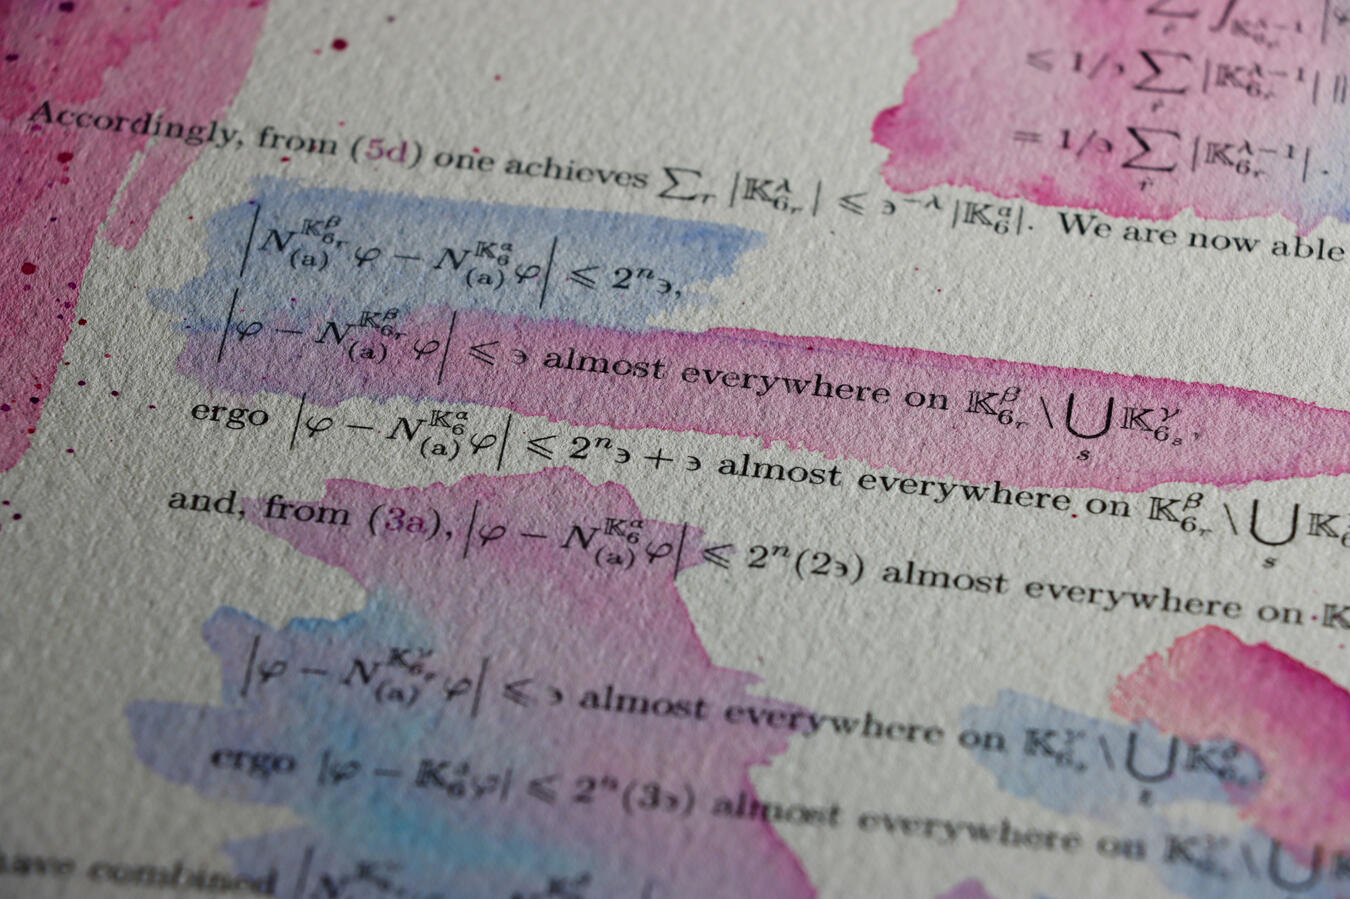 ≤ 1/϶ ∑_r |𝕂_{6_r}^{λ−1}|
= 1/϶ ∑_r |𝕂_{6_r}^{λ−1}|.
Accordingly, from (5d) one achieves ∑_r |𝕂_{6_r}^λ| ≤ ϶^{−λ} |𝕂_6^α|. We are now able
|N_{(a)}^{𝕂_{6_r}^β} φ − N_{(a)}^{𝕂_6^α} φ| ≤ 2^n ϶,
|φ − N_{(a)}^{𝕂_{6_r}^β} φ| ≤ ϶ almost everywhere on 𝕂_{6_r}^β \ ⋃_s 𝕂_{6_s}^γ,
ergo |φ − N_{(a)}^{𝕂_6^α} φ| ≤ 2^n ϶ + ϶ almost everywhere on 𝕂_{6_r}^β \ ⋃_s 𝕂
and, from (3a), |φ − N_{(a)}^{𝕂_6^α} φ| ≤ 2^n(2϶) almost everywhere on 𝕂
|φ − N_{(a)}^{𝕂_{6_r}^γ} φ| ≤ ϶ almost everywhere on 𝕂_{6_r}^γ \ ⋃ 𝕂
ergo |φ − 𝕂_6 φ| ≤ 2^n(3϶) almost everywhere on 𝕂 \ ⋃
have combined